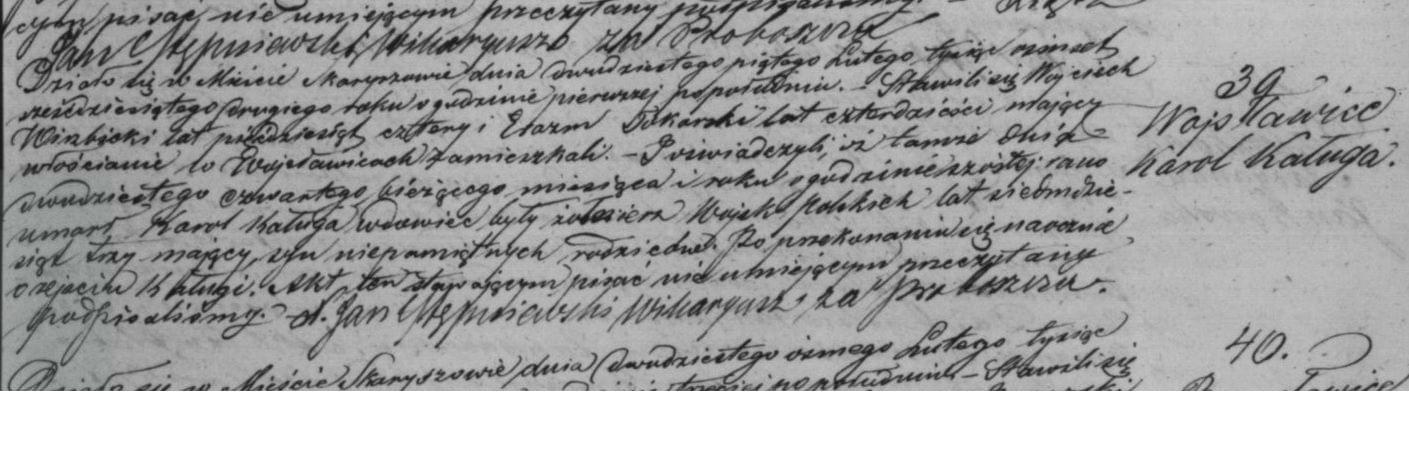 pisać nie umiejącym przeczytany
Jan Stępniewski Wikaryusz za Proboszcza
Działo się w Mieście Skaryszowie dnia dwudziestego piątego Lutego tysiąc ośmset
sześćdziesiątego drugiego roku o godzinie pierwszej po południu. - Stawili się Wojciech
Wirzbicki lat pięćdziesiąt cztery i Erazm lat czterdzieści mający
włościanie w Wojsławicach zamieszkali. - I oświadczyli, iż tamże dnia
dwudziestego czwartego bieżącego miesiąca i roku o godzinie szóstej rano
umarł Karol Kaługa wdowiec były żołnierz Wojsk polskich lat siedmdzie-
siąt trzy mający, syn niepamiętnych rodziców. Po przekonaniu się naocznie
o zejściu Kaługi. Akt ten stawającym pisać nie umiejącym przeczytany
podpisaliśmy. - X. Jan Stępniewski Wikaryusz za Proboszcza.
39
Wojsławice
Karol Kaługa.
Działo się w Mieście Skaryszowie dnia dwudziestego ósmego Lutego tysiąc
po południu - Stawili się
40.